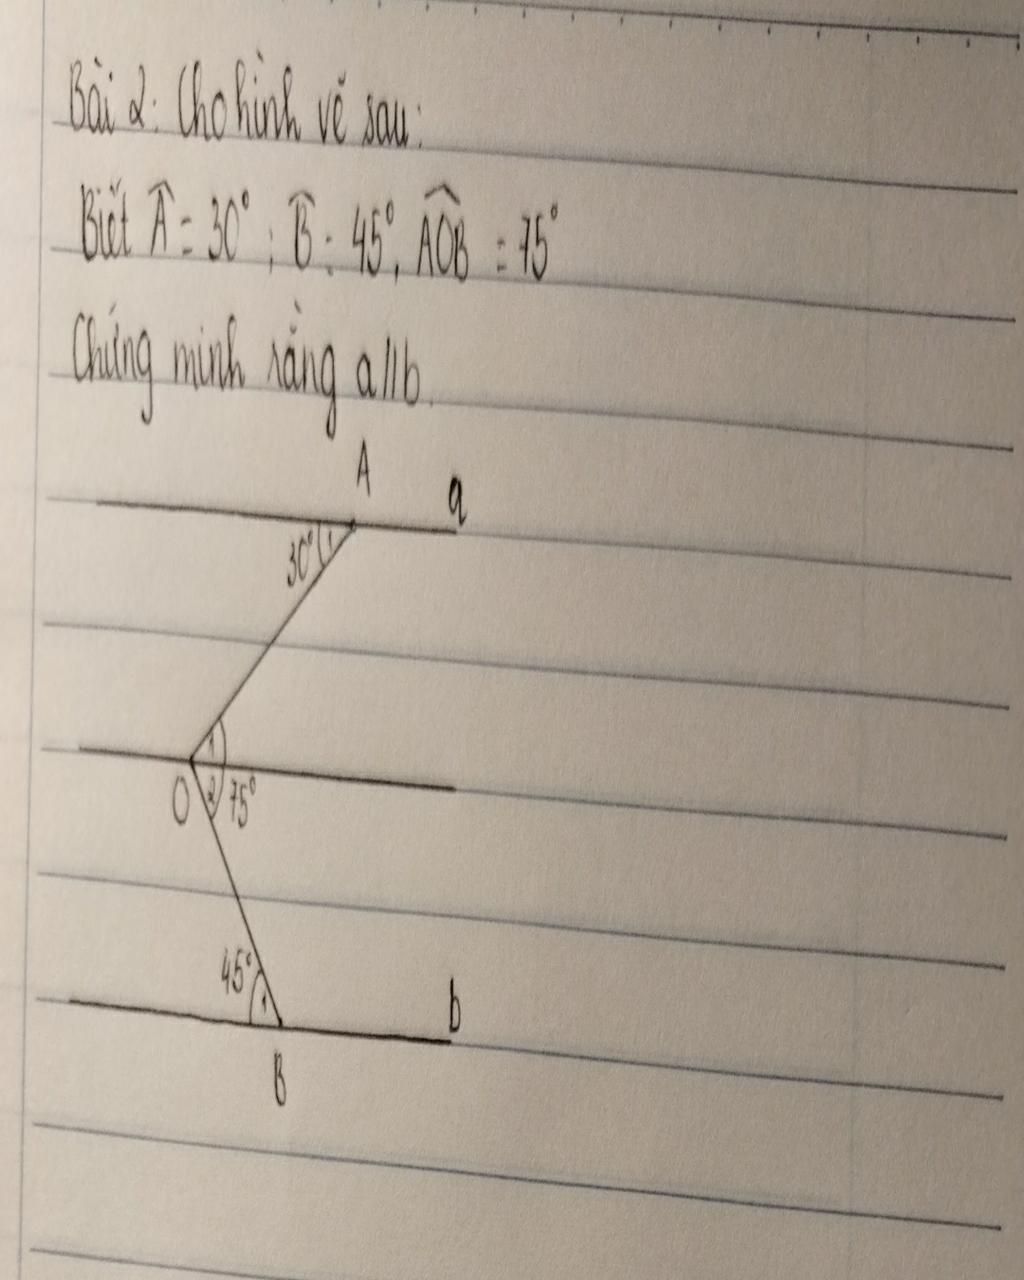 Bài 2: Cho hình vẽ sau:
Biết Â = 30°; B̂ = 45°, AÔB = 75°
Chứng minh rằng a//b.
A
a
30°
1
1
O
2
75°
45°
1
b
B